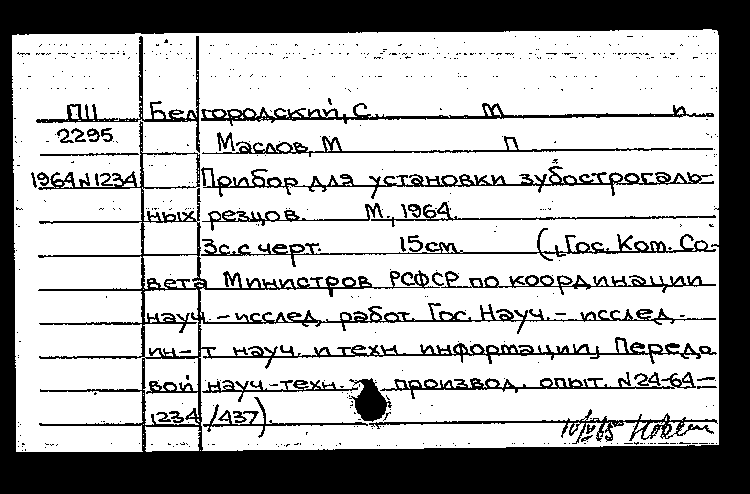 ПII Белгородский, С. М п
2295 Маслов, М П
1964 N 1234 Прибор для установки зубострогаль-
ных резцов. М., 1964.
3с. с черт. 15 cm. („Гос. Ком. Со-
вета Министров РСФСР по координации
науч. - исслед. работ. Гос. Науч. - исслед.
ин-т науч. и техн. информации„ Передо
вой науч.-техн. производ. опыт. N 24-64-
1234/437).
10/IV 65